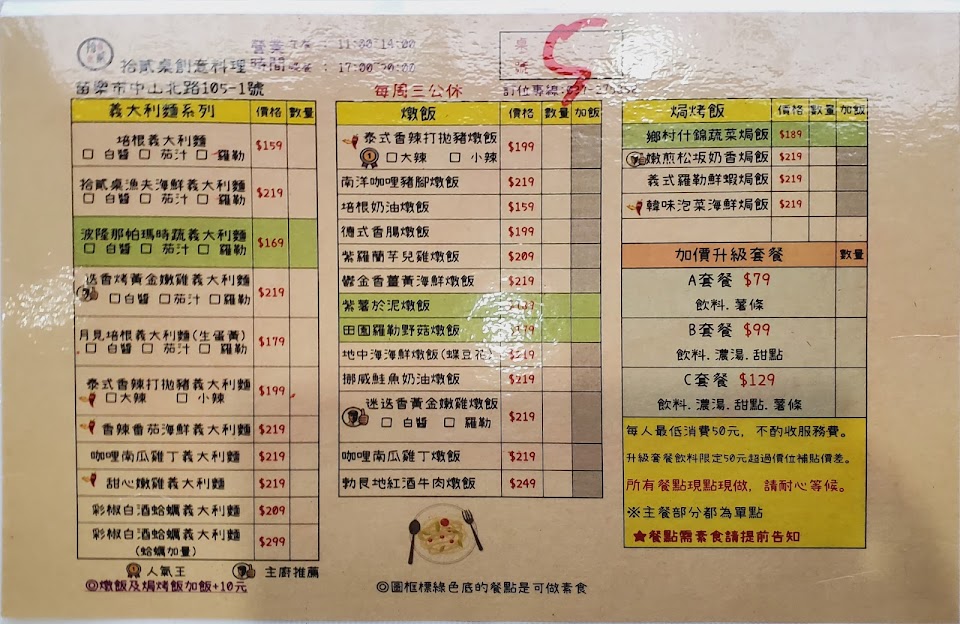 拾貳桌創意料理
營業時間
午餐：11:00-14:00
晚餐：17:00-20:00
苗栗市中山北路105-1號
每周三公休
桌號
5
訂位專線:037-276352
義大利麵系列 價格 數量
培根義大利麵 $159
□ 白醬 □ 茄汁 □ 羅勒
拾貳桌漁夫海鮮義大利麵 $219
□ 白醬 □ 茄汁 □ 羅勒
波隆那帕瑪時蔬義大利麵 $169
□ 白醬 □ 茄汁 □ 羅勒
迷香烤黃金嫩雞義大利麵 $219
□白醬 □茄汁 □羅勒
月見培根義大利麵(生蛋黃) $179
□ 白醬 □ 茄汁 □ 羅勒
泰式香辣打拋豬義大利麵 $199
□大辣 □小辣
香辣番茄海鮮義大利麵 $219
咖哩南瓜雞丁義大利麵 $219
甜心嫩雞義大利麵 $219
彩椒白酒蛤蠣義大利麵 $209
彩椒白酒蛤蠣義大利麵 $299
(蛤蠣加量)
人氣王 主廚推薦
◎燉飯及焗烤飯加飯+10元
燉飯 價格 數量 加飯
泰式香辣打拋豬燉飯 $199
1 □大辣 □ 小辣
南洋咖哩豬腳燉飯 $219
培根奶油燉飯 $159
德式香腸燉飯 $199
紫羅蘭芋兒雞燉飯 $209
鬱金香薑黃海鮮燉飯 $219
紫薯於泥燉飯
田園羅勒野菇燉飯 $179
地中海海鮮燉飯(蝶豆花) $219
挪威鮭魚奶油燉飯 $219
迷迭香黃金嫩雞燉飯 $219
□ 白醬 □ 羅勒
咖哩南瓜雞丁燉飯 $219
勃艮地紅酒牛肉燉飯 $249
◎圖框標綠色底的餐點是可做素食
焗烤飯 價格 數量 加飯
鄉村什錦蔬菜焗飯 $189
嫩煎松坂奶香焗飯 $219
義式羅勒鮮蝦焗飯 $219
韓味泡菜海鮮焗飯 $219
加價升級套餐 數量
A套餐 $79
飲料.薯條
B套餐 $99
飲料.濃湯.甜點
C套餐 $129
飲料.濃湯.甜點.薯條
每人最低消費50元，不酌收服務費。
升級套餐飲料限定50元超過價位補貼價差。
所有餐點現點現做，請耐心等候。
※主餐部分都為單點
★餐點需素食請提前告知